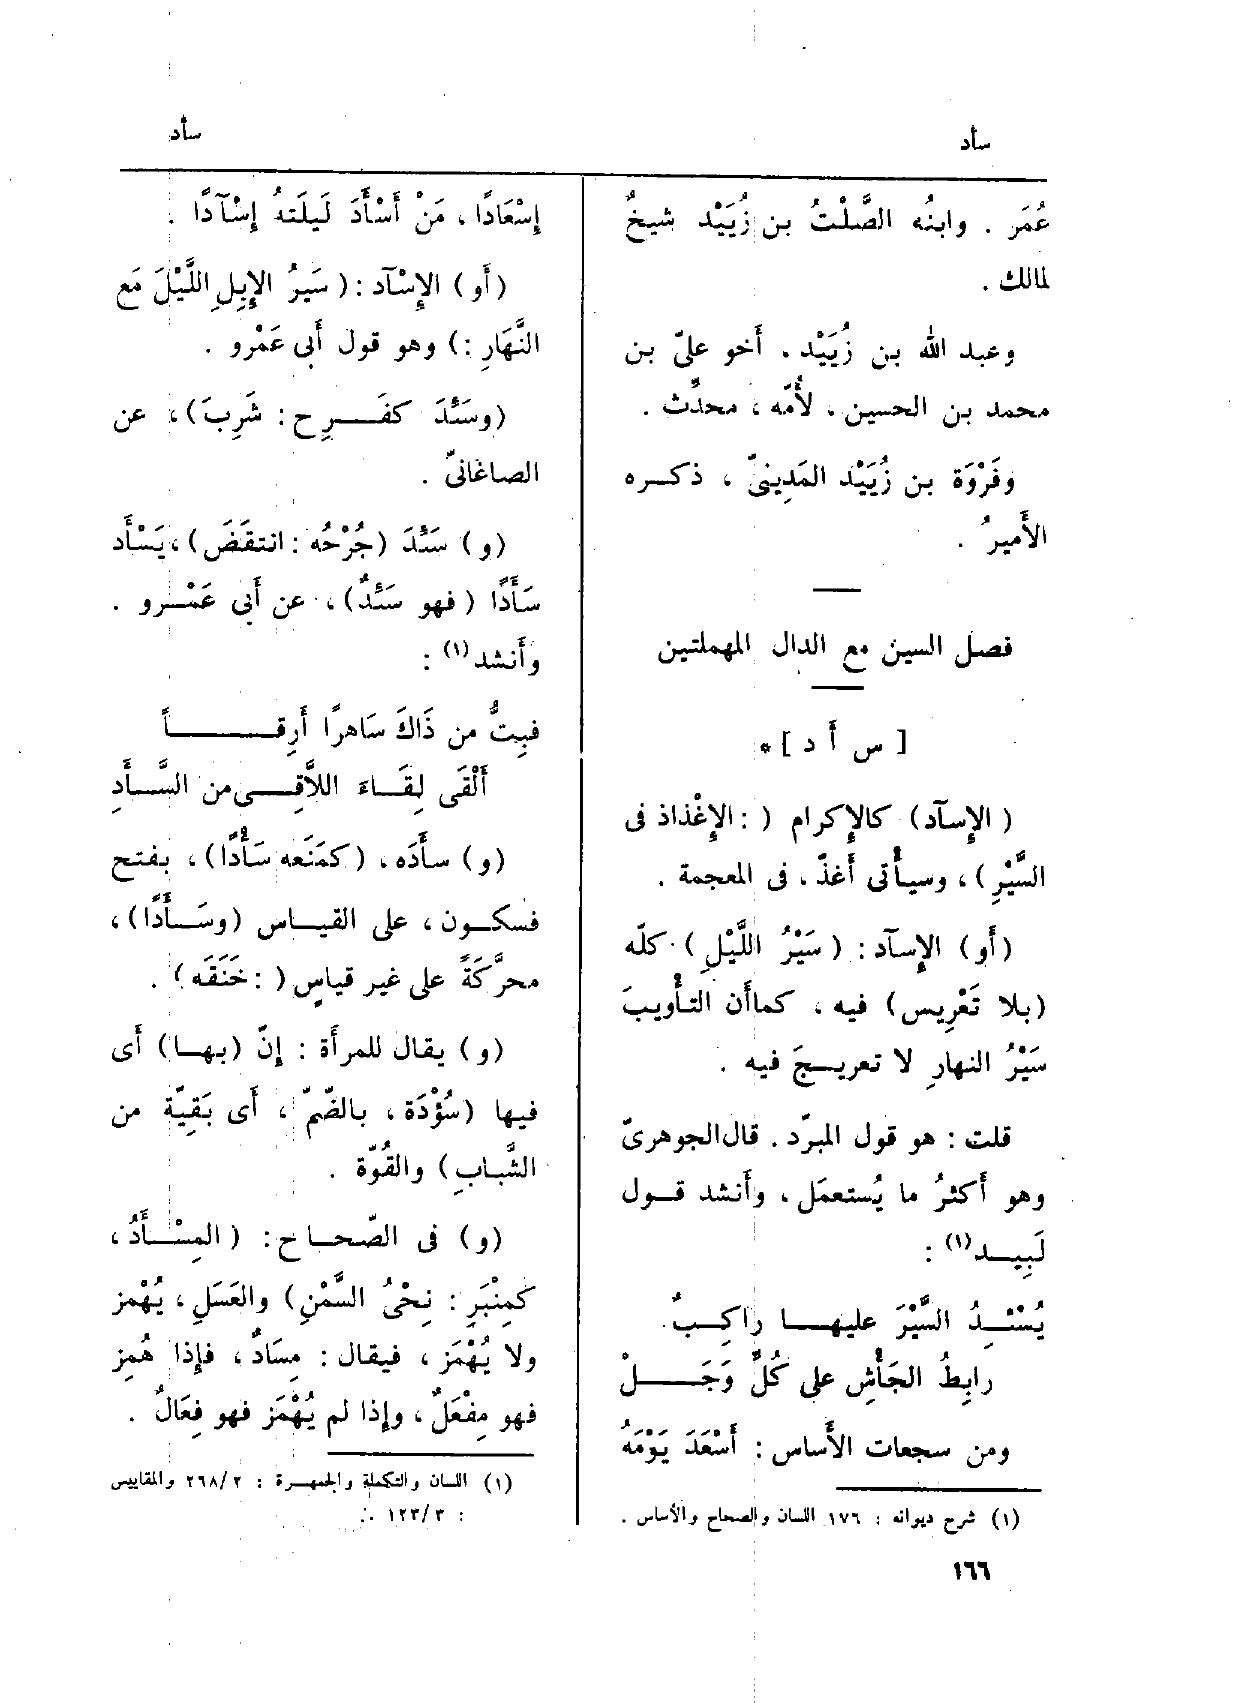 سأد
سأد
عُمَر . وابنُه الصَّلْتُ بن زُيَيْد شيخٌ
لمالك .
وعبد الله بن زُيَيْد . أَخو علىّ بن
محمد بن الحسين ، لأُمّه ، محدِّث .
وفَرْوَة بن زُيَيْد المَدِينىّ ، ذكـره
الأَميرُ .
فصل السين مع الدال المهملتين
[ س أ د ] *
( الإِسآد) كالإِكرام ( : الإِغْذاذ فى
السَّيْرِ ) ، وسيأْتى أَغذّ ، فى المعجمة .
( أَو) الإِسآد : ( سَيْرُ اللَّيْلِ ) كلّه
(بلا تَعْرِيس) فيه ، كما أَن التأْويبَ
سَيْرُ النهارِ لا تعريـجَ فيه .
قلت : هو قول المبرّد . قال الجوهرىّ
وهو أَكثرُ ما يُستعمَل ، وأَنشد قـول
لَبِيـد (١) :
يُسْئـِدُ السَّيْرَ عليهـا راكِـبٌ
رابِطُ الجَأْشِ على كُلِّ وَجَـلْ
ومن سجعات الأَساس : أَسْعَدَ يَوْمَهُ
(١) شرح ديوانه : ١٧٦ اللسان والصحاح والأساس .
إِسْعَادًا ، مَنْ أَسْأَدَ لَيلَتهُ إِسْآدًا .
(أَو) الإِسْآد : ( سَيرُ الإِبِلِ اللَّيْلَ مَع
النَّهَارِ :) وهو قول أَبى عَمْرو .
(وسَئْدَ كفَـرِح : شَرِبَ) ، عن
الصاغانىّ .
(و) سَئْدَ (جُرْحُه : انتقَضَ) ، يَسْأَد
سَأَدًا ( فهو سَئْدٌ) ، عن أَبى عَمْـرو .
وأَنشد (١) :
فبِتُّ من ذَاكَ سَاهرًا أَرِقـاً
أَلْقَى لِقَـاءَ اللاَّقِـى من السَّـأَدِ
(و) سأَدَه ، (كمَنَعه سَأْدًا) ، بفتح
فسكـون ، على القيـاس (وسَـأَدًا) ،
محرَّكَةً على غير قياسٍ ( : خَنَقَه ) .
(و) يقال للمرأَة : إِنّ (بهـا) أَى
فيها (سُؤْدَة ، بالضّمّ ، أَى بَقِيّة من
الشَّبابِ) والقُوّة .
(و) فى الصّحـاح : ( المِسْـأَدُ ،
كمِنْبَرٍ : نِحْىُ السَّمْنِ) والعَسَلِ ، يُهْمز
ولا يُهْمَز ، فيقال : مِسَادٌ ، فإِذا هُمِز
فهو مِفْعَلٌ ، وإِذا لم يُهْمَز فهو فِعَالٌ .
(١) اللسان والتكملة والجمهـرة : ٢٦٨/٢ والمقاييس
: ١٢٣/٣ .
١٦٦